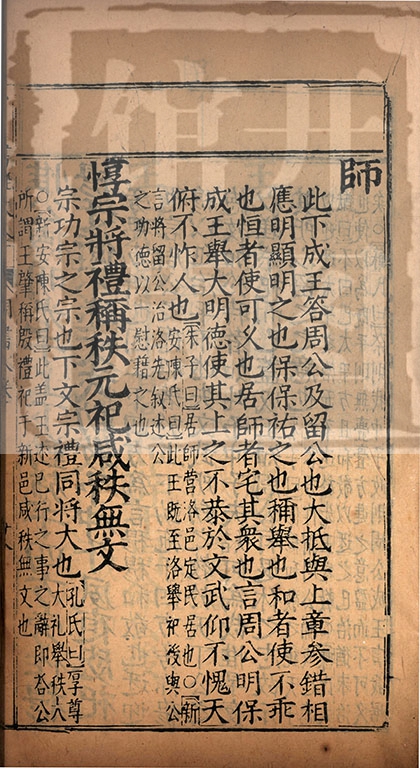 師
此下成王答周公及留公也大抵與上章參錯相
應明顯明之也保保祐之也稱舉也和者使不乖
也恒者使可乆也居師者宅其衆也言周公明保
成王舉大明德使其上之不恭於文武仰不愧天
俯不怍人也朱子曰居師營洛邑定民居也○新
安陳氏曰此王既至洛舉祀後與公
言將留公治洛先叙述公
之功德以一慰藉之也
惇宗將禮稱秩元祀咸秩無文
宗功宗之宗也下文宗禮同將大也孔氏曰厚尊
大礼舉秩大
○新安陳氏曰此盖王述已行之事之辭即荅公
所謂王肇稱殷禮祀于新邑咸秩無文也